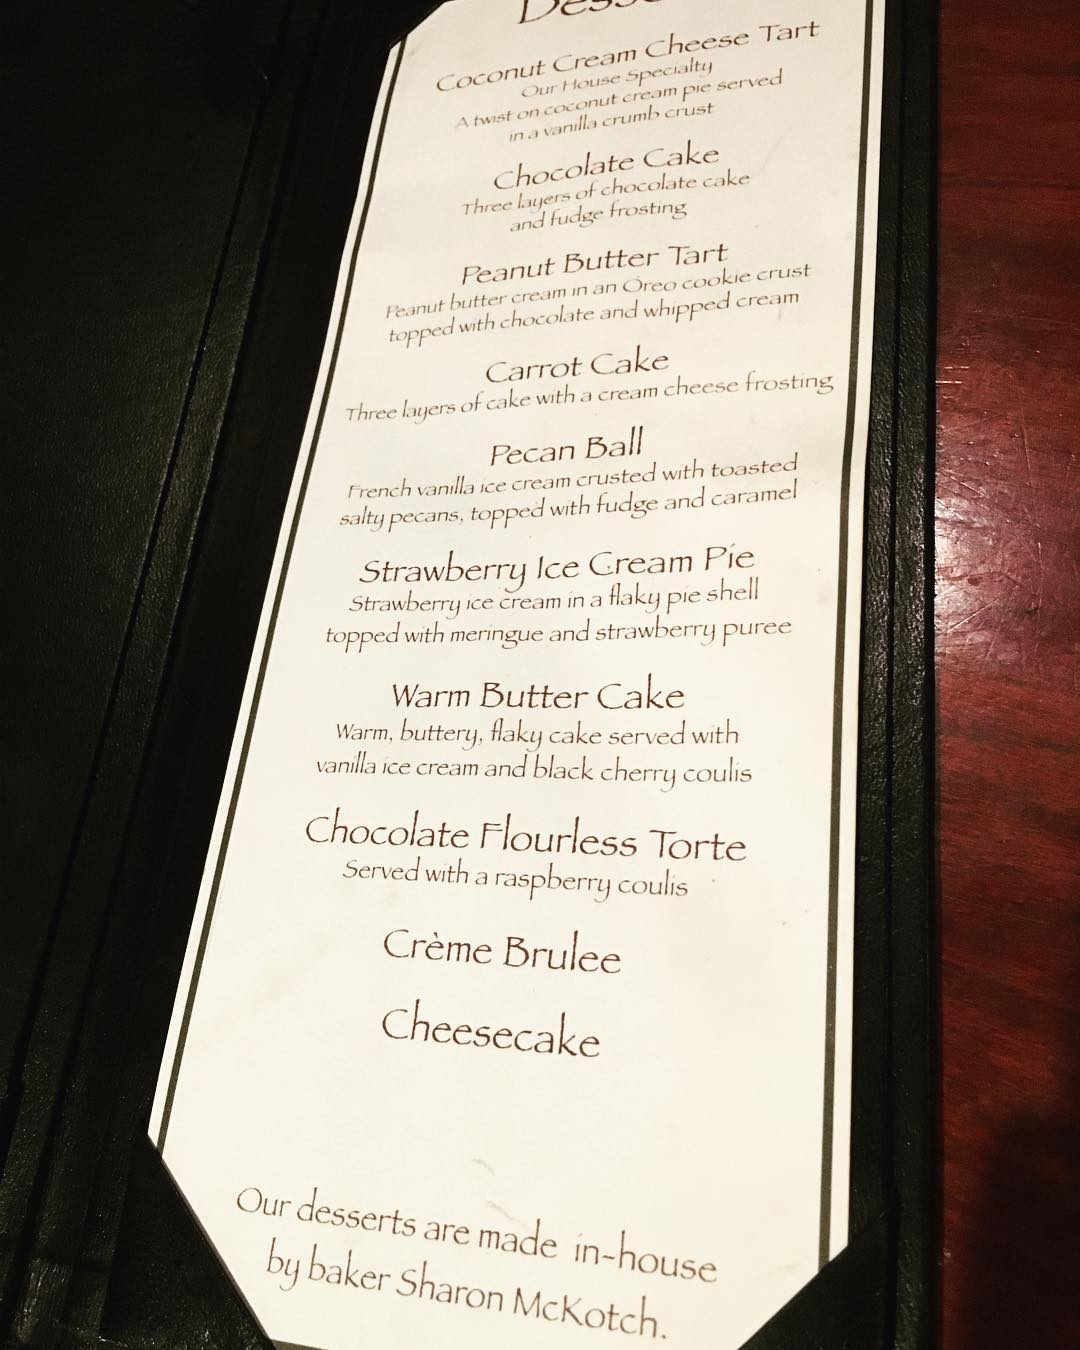 Coconut Cream Cheese Tart
Our House Specialty
A twist on coconut cream pie served
in a vanilla crumb crust
Chocolate Cake
Three layers of chocolate cake
and fudge frosting
Peanut Butter Tart
Peanut butter cream in an Oreo cookie crust
topped with chocolate and whipped cream
Carrot Cake
Three layers of cake with a cream cheese frosting
Pecan Ball
French vanilla ice cream crusted with toasted
salty pecans, topped with fudge and caramel
Strawberry Ice Cream Pie
Strawberry ice cream in a flaky pie shell
topped with meringue and strawberry puree
Warm Butter Cake
Warm, buttery, flaky cake served with
vanilla ice cream and black cherry coulis
Chocolate Flourless Torte
Served with a raspberry coulis
Crème Brulee
Cheesecake
Our desserts are made in-house
by baker Sharon McKotch.